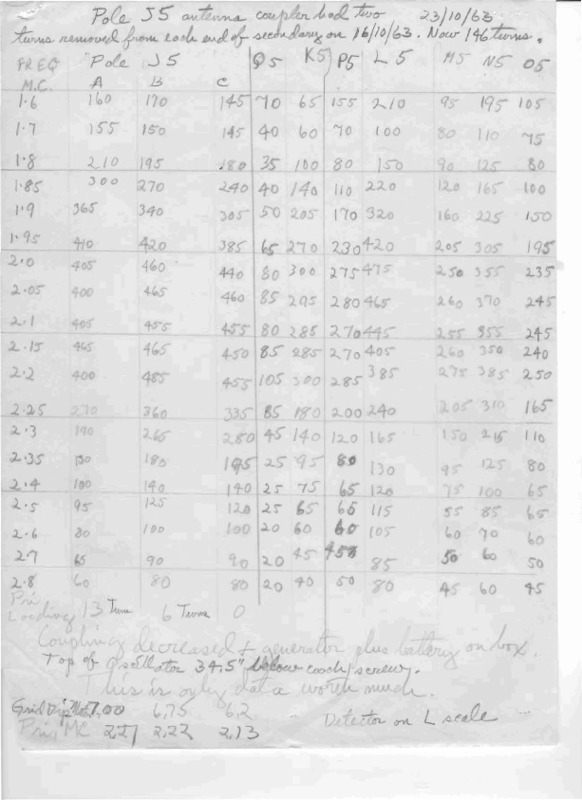 Pole J5 antenna coupler had two 23/10/63
turns removed from each end of secondary on 16/10/63. Now 146 turns.
FREQ "Pole J5 O5 K5 P5 L5 M5 N5 O5
M.C. A B C
1.6 160 170 145 70 65 155 210 95 195 105
1.7 155 150 145 40 60 70 100 80 110 75
1.8 210 195 180 35 100 80 150 90 125 80
1.85 300 270 240 40 140 110 220 120 165 100
1.9 365 340 305 50 205 170 320 160 225 150
1.95 410 420 385 65 270 230 420 205 305 195
2.0 405 460 440 80 300 275 475 250 355 235
2.05 400 465 460 85 295 280 465 260 370 245
2.1 405 455 455 80 285 270 445 255 355 245
2.15 465 465 450 85 285 270 405 260 350 240
2.2 400 485 455 105 300 285 385 275 385 250
2.25 270 360 335 85 180 200 240 205 310 165
2.3 190 265 280 45 140 120 165 150 215 110
2.35 130 180 195 25 95 80 130 95 125 80
2.4 100 140 140 25 75 65 120 75 100 65
2.5 95 125 120 25 65 65 115 55 85 65
2.6 80 100 100 20 60 60 105 60 70 60
2.7 65 90 90 20 45 45 85 50 60 50
2.8 60 80 80 20 40 50 80 45 60 45
Pri
Loading 13 Turn 6 Turns 0
Coupling decreased & generator plus battery on box.
Top of oscillator 34.5" below coach screw.
This is only data worth much.
Grid Dip Met. 7.00 6.75 6.2 Detector on L scale
Pri MC 2.27 2.22 2.13